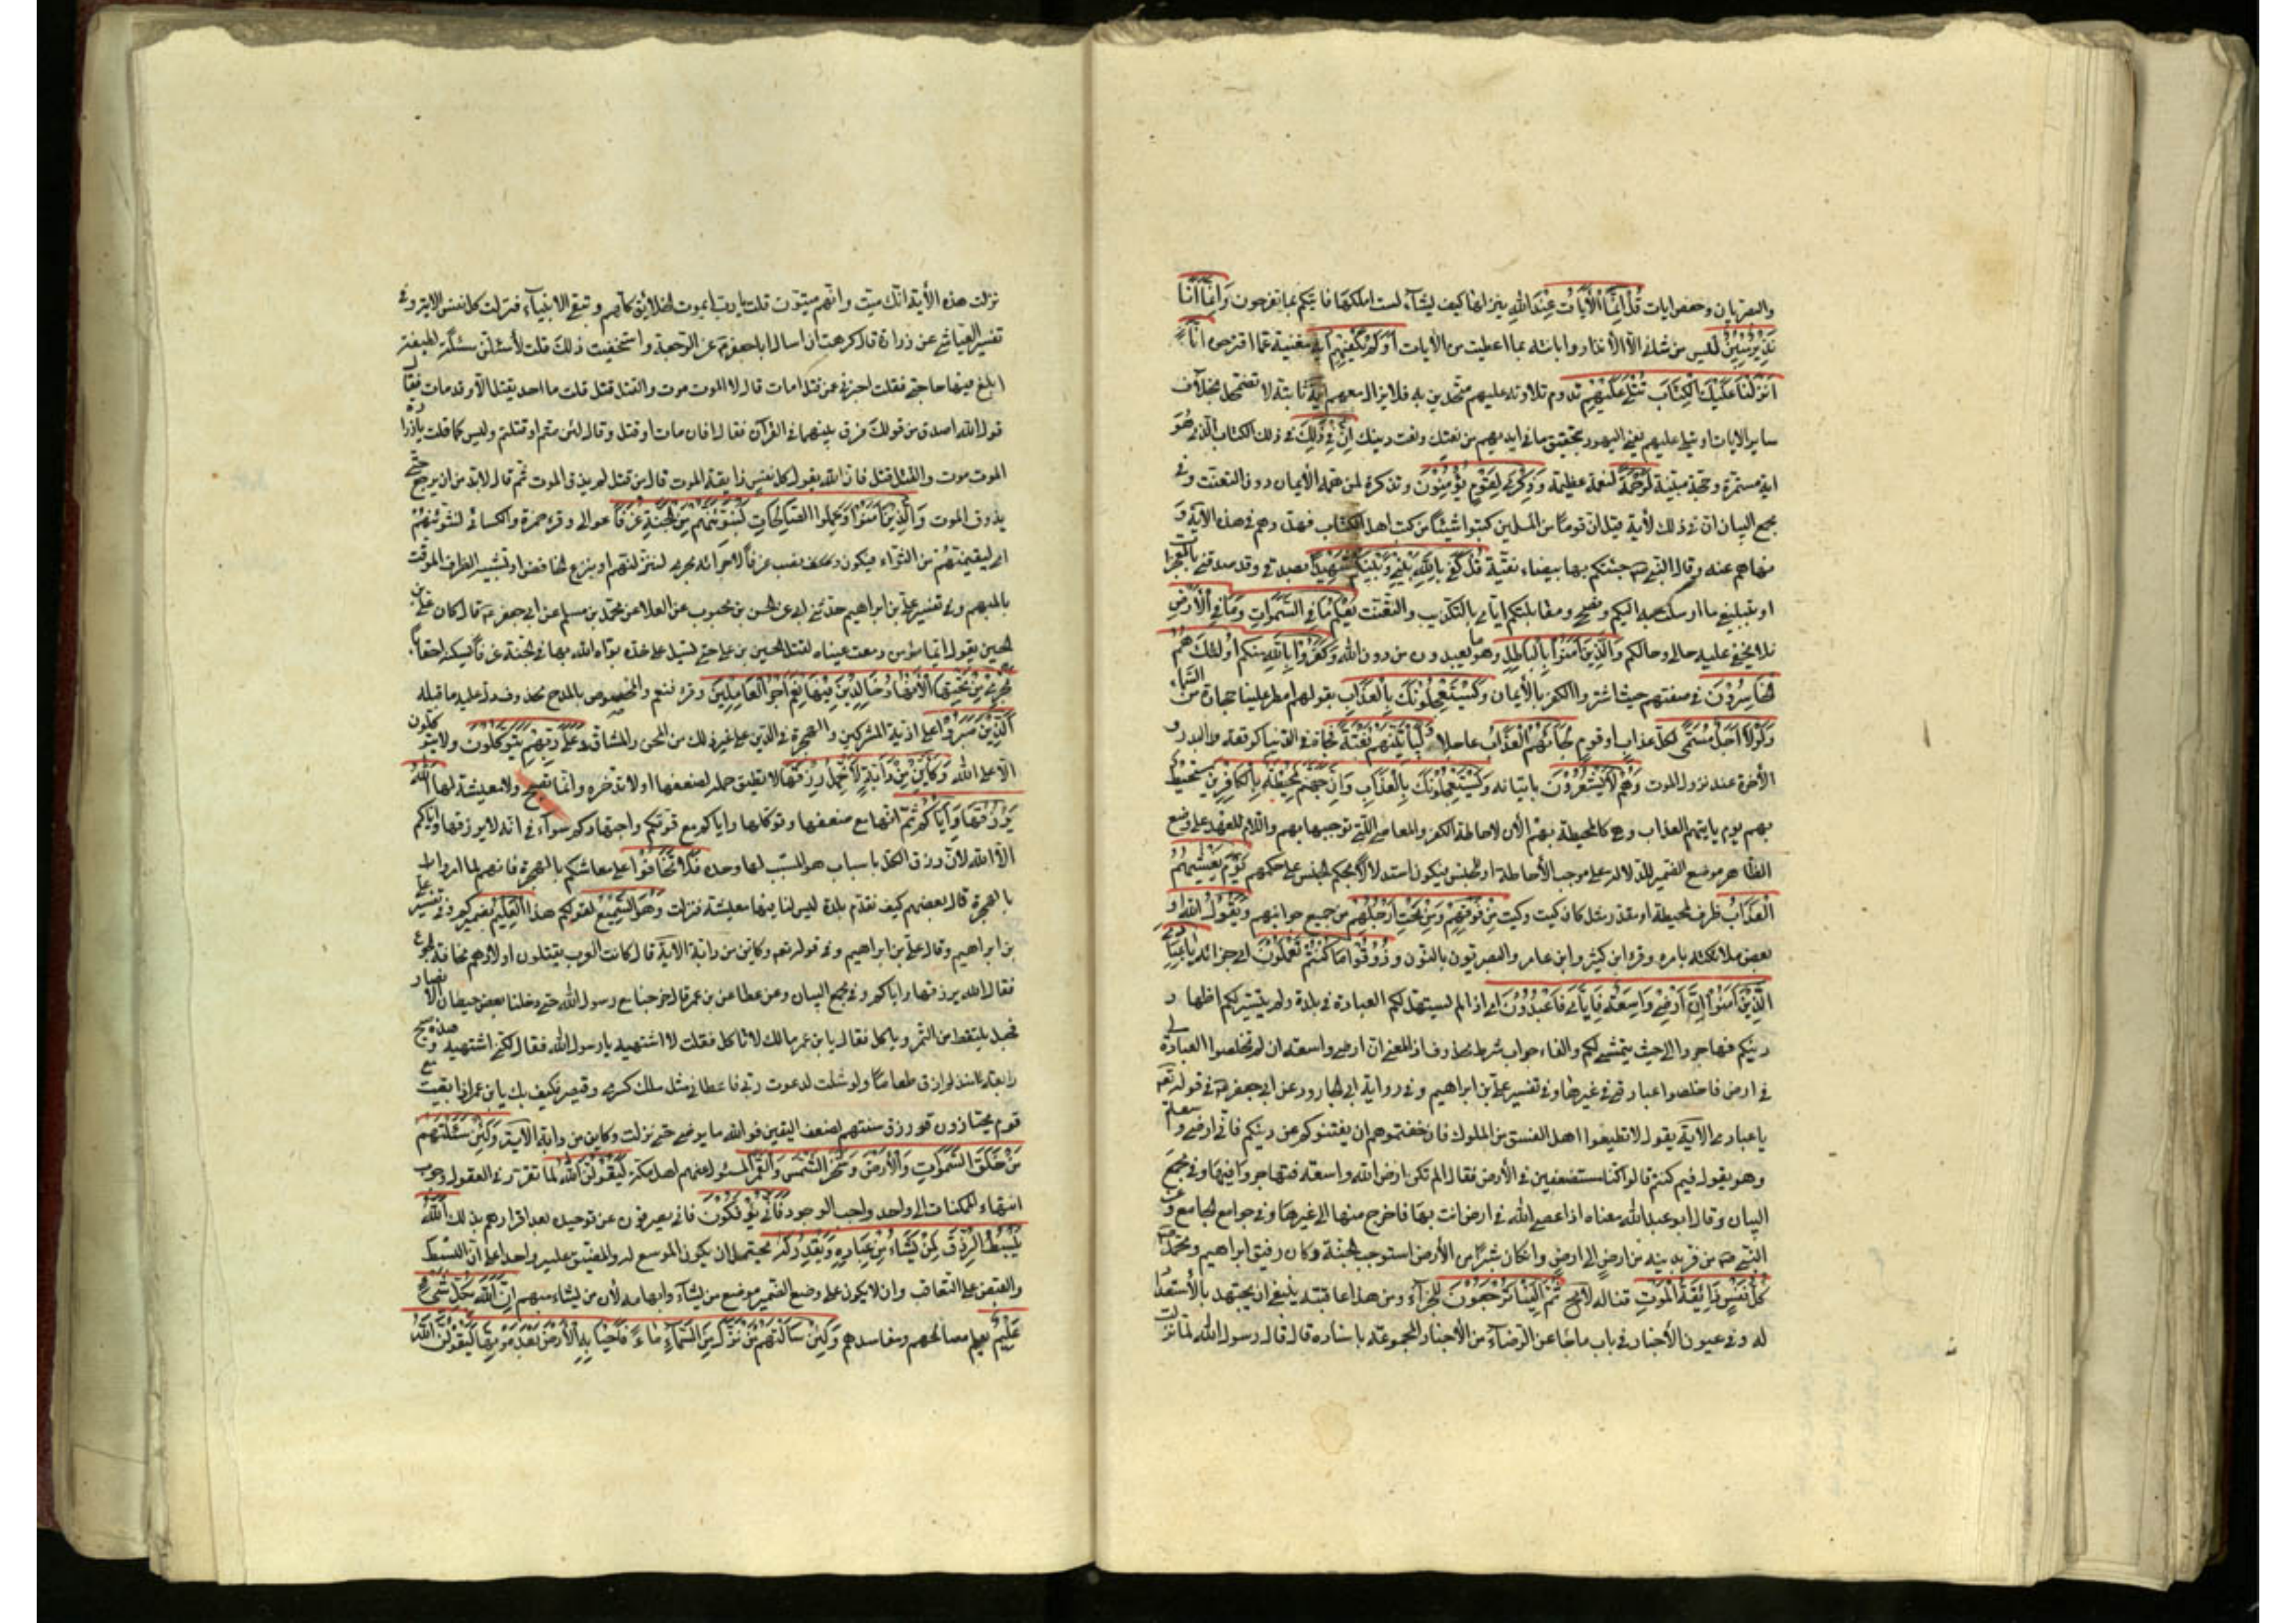 والبصريان وحفص ايات قُلْ اِنَّمَا الْاٰيَاتُ عِنْدَ اللّٰهِ ينزلها كيف يشآء لست املكها فاتيكم بما تقترحون وَاِنَّمَا اَنَا
نَذِيرٌ مُبِينٌ ليس من شانى الّا الانذار وابانته بما اعطيت من الايات اَوَلَمْ يَكْفِهِمْ اٰية مغنية عمّا اقترحوه اَنَّا
اَنْزَلْنَا عَلَيْكَ الْكِتَابَ يُتْلٰى عَلَيْهِمْ تدوم تلاوته عليهم متحدين به فلا يزال معهم اية ثابتة لا تضمحل بخلاف
ساير الايات او يتلى عليهم يعنى اليهود بتحقيق ما فى ايديهم من نعتك ونعت دينك اِنَّ فِى ذٰلِكَ فى ذلك الكتاب الذى هُوَ
اية مستمرة وحجة مبينة لَرَحْمَةً لنعمة عظيمة وَذِكْرٰى لِقَوْمٍ يُؤْمِنُونَ وتذكرة لمن همه الايمان دون التعنت وفى
مجمع البيان انّ فى ذلك لأية قيل انّ قومًا من المسلمين كتبوا شيئًا من كتب اهل الكتاب فهددهم فى هذه الاية وَ
نهاهم عنه وقال النبى جئتكم بها بيضاء نقية قُلْ كَفٰى بِاللّٰهِ بَيْنِى وَبَيْنَكُمْ شَهِيدًا بصدقى وقد صدقنى بالمعجزات
او بتبليغى ما ارسلت به اليكم ونصحى ومقابلتكم ايّاى بالتكذيب والتعنت يَعْلَمُ مَا فِى السَّمٰوَاتِ وَمَا فِى الْاَرْضِ
فلا يخفى عليه حالى وحالكم وَالَّذِينَ اٰمَنُوا بِالْبَاطِلِ وهو ما يعبدون من دون الله وَكَفَرُوا بِاللّٰهِ منكم اُولٰئِكَ هُمُ
الْخَاسِرُونَ فى صفقتهم حيث اشتروا الكفر بالأيمان وَيَسْتَعْجِلُونَكَ بِالْعَذَابِ بقولهم امطر علينا حجارة من السّماء
وَلَوْلَا اَجَلٌ مُسَمًّى لكل عذاب او قوم لَجَاءَهُمُ الْعَذَابُ عاجلا وَلَيَأْتِيَنَّهُمْ بَغْتَةً فجاة فى الدنيا كوقعة بدر او
الأخرة عند نزول الموت وَهُمْ لَا يَشْعُرُونَ باتيانه وَيَسْتَعْجِلُونَكَ بِالْعَذَابِ وَاِنَّ جَهَنَّمَ لَمُحِيطَةٌ بِالْكَافِرِينَ ستحيط
بهم يوم ياتيهم العذاب وهى كالمحيطة بهم الآن لاحاطة الكفر والمعاصى التى توجبها بهم واللام للعهد على وضع
الظاهر موضع الضمير للدلالة على موجب الأحاطة او للجنس فيكون استدلالًا بحكم الجنس على حكمهم يَوْمَ يَغْشٰيهُمُ
الْعَذَابُ ظرف لمحيطة او مقدر مثل كان كيت وكيت مِنْ فَوْقِهِمْ وَمِنْ تَحْتِ اَرْجُلِهِمْ من جميع جوانبهم وَيَقُولُ الله او
بعض ملائكته بامره وقرء ابن كثير وابن عامر والبصريون بالنون ذُوقُوا مَا كُنْتُمْ تَعْمَلُونَ اى جزائه يَا عِبَادِىَ
الَّذِينَ اٰمَنُوا اِنَّ اَرْضِى وَاسِعَةٌ فَاِيَّاىَ فَاعْبُدُونِ اى اذا لم يتسهل لكم العبادة فى بلدة ولم يتيسر لكم اظهار
دينكم فهاجروا الى حيث يتمشى لكم والفاء جواب شرط محذوف اذ المعنى ان ارضى واسعة ان لم تخلصوا العبادة لى
فى ارض فاخلصوا عبادتى فى غيرها وفى تفسير على بن ابراهيم وفى رواية ابى الجارود عن ابى جعفر فى قوله تعم
يا عبادى الاية يقول لا تطيعوا اهل الفسق من الملوك فان خفتموهم ان يفتنوكم عن دينكم فانّ ارضى واسعة
وهو يقول فيم كنتم قالوا كنّا مستضعفين فى الأرض فقال الم تكن ارض الله واسعة فتهاجروا فيها وفى مجمع
البيان وقال ابو عبدالله معناه اذا عصى الله فى ارض انت بها فاخرج منها الى غيرها وفى جوامع الجامع وعن
النبى من فرّ بدينه من ارض الى ارض وان كان شبرًا من الأرض استوجب الجنة وكان رفيق ابراهيم ومحمد
كُلُّ نَفْسٍ ذَائِقَةُ الْمَوْتِ تناله لا محالة ثُمَّ اِلَيْنَا تُرْجَعُونَ للجزآء ومن هذا عاقبته ينبغى ان يجتهد بالأستعداد
له وفى عيون الأخبار فى باب ما جاء عن الرضا من الأخبار المجموعة باسناده قال قال رسول الله لما نزلت
نزلت هذه الأية انّك ميّت وانهم ميّتون قلت يا رب ايموت الخلائق كلهم وتبقى الانبيآء فنزلت كل نفس الاية وفى
تفسير العياشى عن زرارة قال كرهت ان اسال ابا جعفر عن الرجعة واستخفيت ذلك قلت لأسئلن مسئلة لطيفة
ابلغ فيها حاجتى فقلت اخبرنى عمن قتل امات قال لا الموت موت والقتل قتل قلت ما احد يقتل الّا وقد مات فقال
قول الله اصدق من قولك فرق بينهما فى القرآن فقال افان مات او قتل وقال لئن متم او قتلتم وليس كما قلت يا زرارة
الموت موت والقتل قتل قلت فان الله يقول كل نفس ذايقة الموت قال من قتل لم يذق الموت ثم قال لابد من ان يرجع حتى
يذوق الموت وَالَّذِينَ اٰمَنُوا وَعَمِلُوا الصَّالِحَاتِ لَنُبَوِّئَنَّهُمْ مِنَ الْجَنَّةِ غُرَفًا عوالى وقرء حمزة والكسائى لنثوينهم
اى لنقيمنهم من الثواء فيكون نصب غرفًا لاجرائه مجرى لننزلنهم او بنزع الخافض او تشبيه الظرف الموقت
بالمبهم وفى تفسير على بن ابراهيم حدثنى ابى عن الحسن بن محبوب عن العلا عن محمد بن مسلم عن ابى جعفر قال كان على بن
الحسين يقول ايّما مؤمن دمعت عيناه لقتل الحسين بن على حتى تسيل على خده بوّاه الله بها فى الجنة غرفًا يسكنها احقابًا
تَجْرِى مِنْ تَحْتِهَا الْاَنْهَارُ خَالِدِينَ فِيهَا نِعْمَ اَجْرُ الْعَامِلِينَ وقرء فنعم والمخصوص بالمدح محذوف دل عليه ما قبله
الَّذِينَ صَبَرُوا على اذية المشركين والهجرة فى الدين على غير ذلك من المحن والمشاق وَعَلٰى رَبِّهِمْ يَتَوَكَّلُونَ ولا يتوكلون
الّا على الله وَكَاَيِّنْ مِنْ دَابَّةٍ لَا تَحْمِلُ رِزْقَهَا لا تطيق حمله لضعفها او لا تدخره وانّما تصبح ولا معيشة لها اَللّٰهُ
يَرْزُقُهَا وَاِيَّاكُمْ ثم انّها مع ضعفها وتوكلها واياكم مع قوتكم واجتهادكم سوآء فى انّه لا يرزقها واياكم
الّا الله لانّ رزق الكل باسباب هو المسبب لها وحده فلا تخافوا على معاشكم بالهجرة فانهم لما امروا
بالهجرة قال بعضهم كيف نقدم بلدة ليس لنا فيها معيشة فنزلت وَهُوَ السَّمِيعُ لقولكم هذا الْعَلِيمُ بضميركم وفى تفسير على
بن ابراهيم وقال على بن ابراهيم وفى قوله تعم وكاين من دابة الاية قال كانت العرب يقتلون اولادهم مخافة الجوع
فقال الله يرزقها واياكم وفى مجمع البيان وعن عطا عن بن عمر قال خرجنا مع رسول الله حتى دخلنا بعض حيطان الانصار
فجعل يلتقط من الثمر وياكل فقال يا بن عمر مالك لا تاكل فقلت لا اشتهيه يا رسول الله فقال لكنى اشتهيه وهذه صبح
رابعة منذ لم اذق طعامًا ولو شئت لدعوت ربى فاعطانى مثل ملك كسرى وقيصر فكيف بك يا بن عمر اذا بقيت مع
قوم يخبازون رزق سنتهم لضعف اليقين فوالله ما برحنا حتى نزلت وكاين من دابة الآية وَلَئِنْ سَئَلْتَهُمْ
مَنْ خَلَقَ السَّمٰوَاتِ وَالْاَرْضَ وَسَخَّرَ الشَّمْسَ وَالْقَمَرَ المسئول عنهم اهل مكة لَيَقُولُنَّ اللّٰهُ لما تقرر فى العقول وجوب
انتهاء الممكنات الى واحد واجب الوجود فَاَنّٰى يُؤْفَكُونَ فانّى يصرفون عن توحيده بعد اقرارهم بذلك اَللّٰهُ
يَبْسُطُ الرِّزْقَ لِمَنْ يَشَاءُ مِنْ عِبَادِهِ وَيَقْدِرُ لَهُ يحتمل ان يكون الموسع له والمضيق عليه واحدا على انّ البسط
والقبض على التعاقب وان لا يكون على وضع الضمير موضع من يشآء وابهامه لأن من يشاء مبهم اِنَّ اللّٰهَ بِكُلِّ شَيْءٍ
عَلِيمٌ يعلم مصالحهم ومفاسدهم وَلَئِنْ سَاَلْتَهُمْ مَنْ نَزَّلَ مِنَ السَّمَآءِ مَاءً فَاَحْيَا بِهِ الْاَرْضَ مِنْ بَعْدِ مَوْتِهَا لَيَقُولُنَّ اللّٰهُ